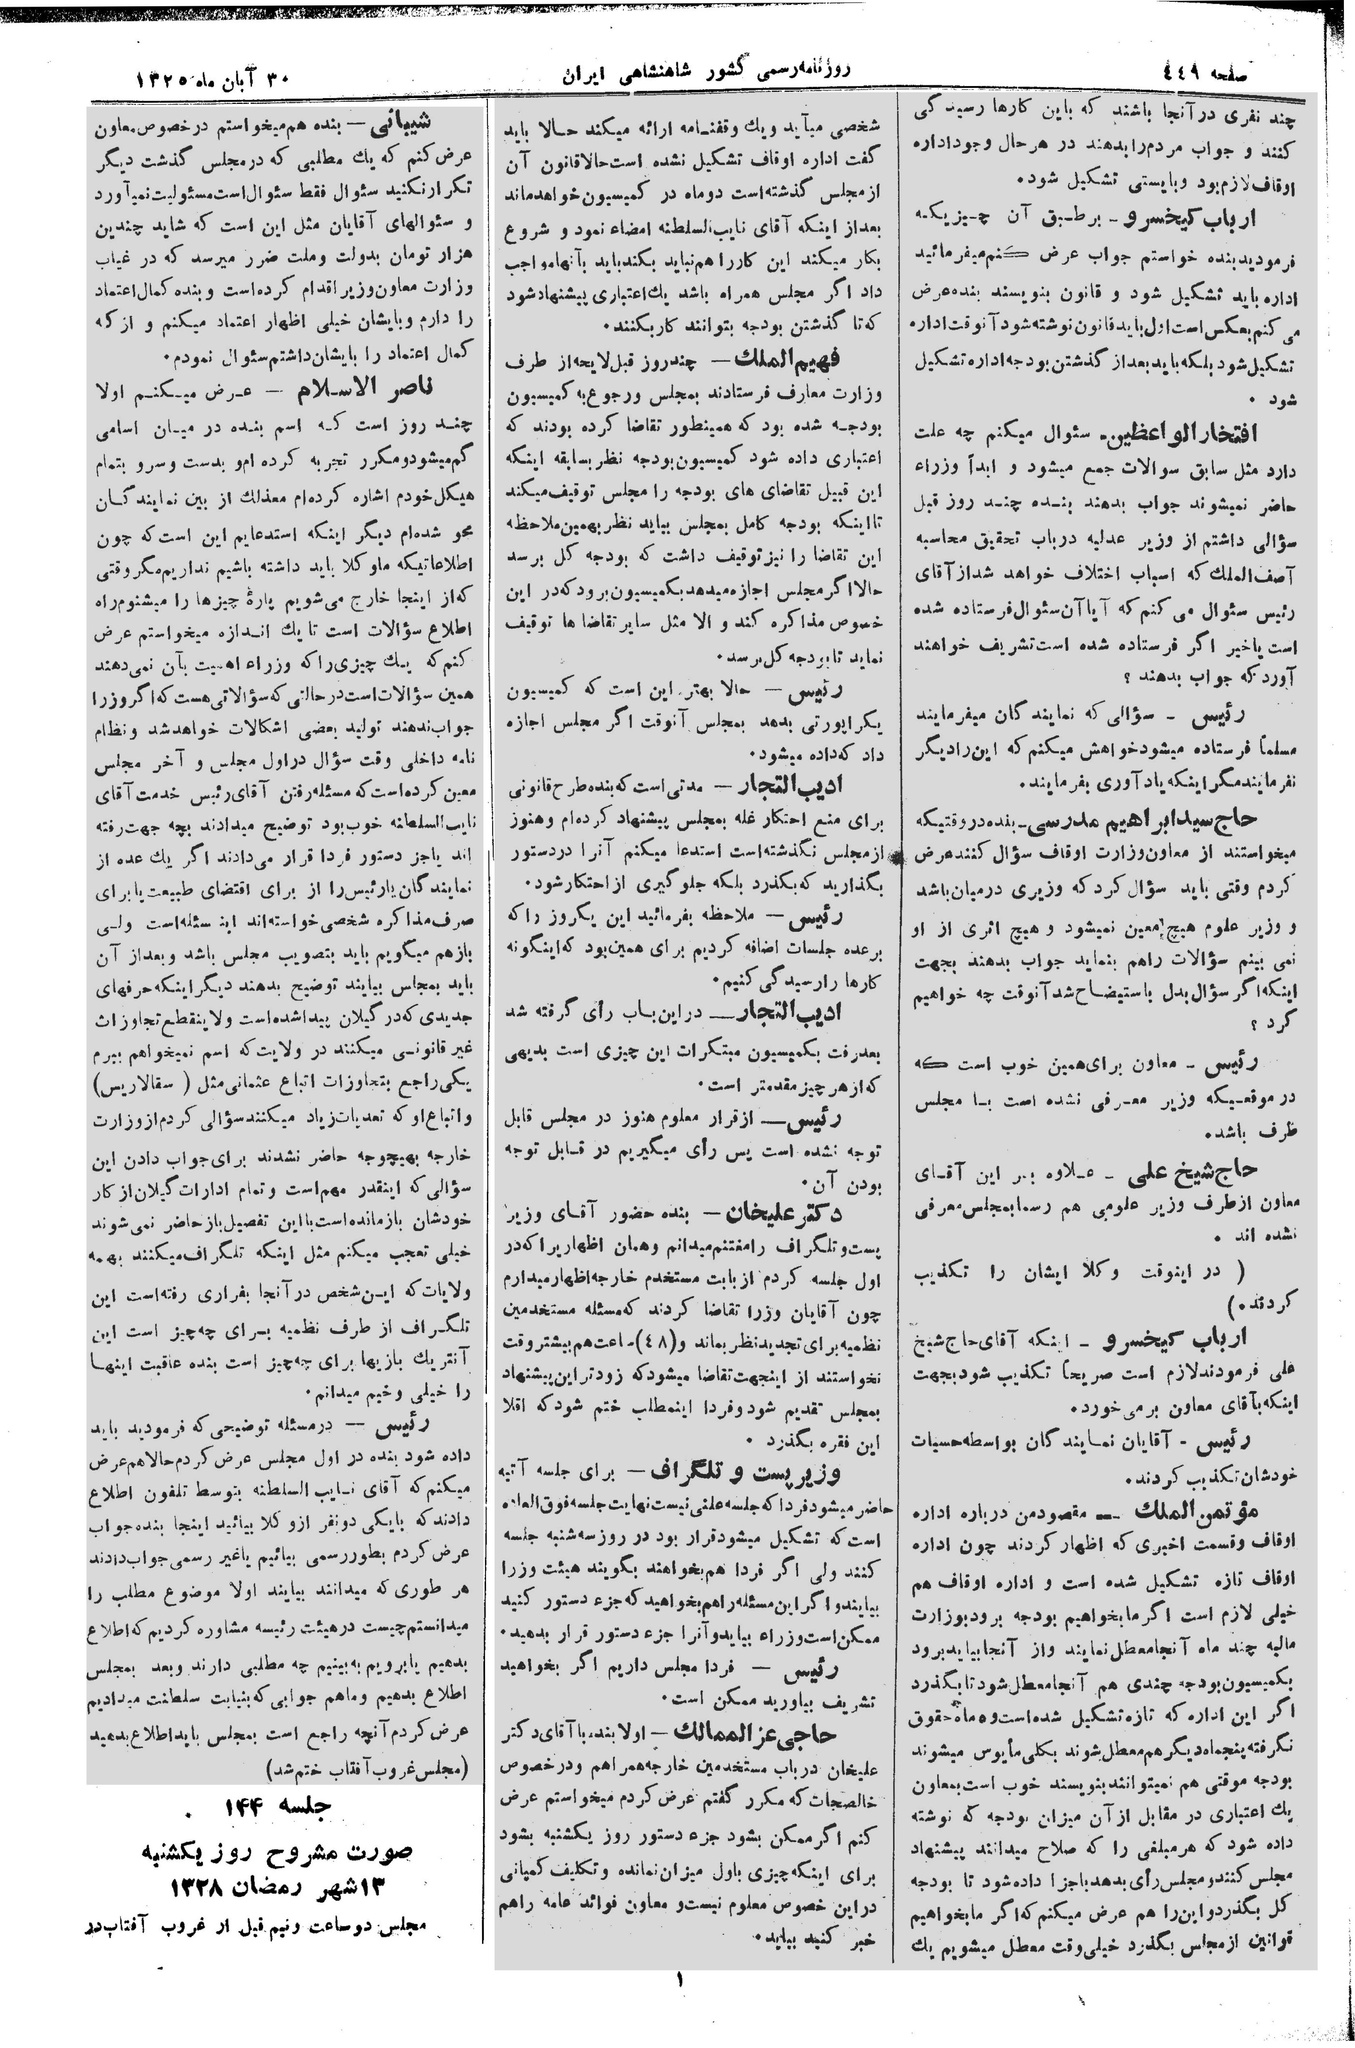 صفحه ٤٤٩
روزنامه رسمی کشور شاهنشاهی ایران
۳۰ آبان ماه ۱۳۲۵
چند نفری در آنجا باشند که باین کارها رسیدگی
کنند و جواب مردم را بدهند در هر حال وجود اداره
اوقاف لازم بود و بایستی تشکیل شود.
ارباب کیخسرو ـ بر طبق آن چیزیکه
فرمودید بنده خواستم جواب عرض کنم میفرمائید
اداره باید تشکیل شود و قانون بنویسند بنده عرض
می کنم بعکس است اول باید قانون نوشته شود آنوقت اداره
تشکیل شود بلکه باید بعد از گذشتن بودجه اداره تشکیل
شود .
افتخار الواعظین ـ سئوال میکنم چه علت
دارد مثل سابق سوالات جمع میشود و ابداً وزراء
حاضر نمیشوند جواب بدهند بنده چند روز قبل
سؤالی داشتم از وزیر عدلیه در باب تحقیق محاسبه
آصف الملک که اسباب اختلاف خواهد شد از آقای
رئیس سئوال می کنم که آیا آن سئوال فرستاده شده
است یا خیر اگر فرستاده شده است تشریف خواهند
آورد که جواب بدهند ؟
رئیس ـ سؤالی که نمایندگان میفرمایند
مسلماً فرستاده میشود خواهش میکنم که این را دیگر
نفرمایند مگر اینکه یادآوری بفرمایند.
حاج سید ابراهیم مدرسی ـ بنده در وقتیکه
میخواستند از معاون وزارت اوقاف سؤال کنند عرض
کردم وقتی باید سؤال کرد که وزیری در میان باشد
و وزیر علوم هیچ معین نمیشود و هیچ اثری از او
نمی بینم سؤالات را هم بنماید جواب بدهند بجهت
اینکه اگر سؤال بدل باستیضاح شد آنوقت چه خواهیم
کرد ؟
رئیس ـ معاون برای همین خوب است که
در موقعیکه وزیر معرفی نشده است با مجلس
طرف باشد.
حاج شیخ علی ـ علاوه بر این آقای
معاون از طرف وزیر علومی هم رسماً بمجلس معرفی
نشده اند .
( در اینوقت وکلا ایشان را تکذیب
کردند.)
ارباب کیخسرو ـ اینکه آقای حاج شیخ
علی فرمودند لازم است صریحاً تکذیب شود بجهت
اینکه بآقای معاون بر می خورد.
رئیس ـ آقایان نمایندگان بواسطه حسیات
خودشان تکذیب کردند.
مؤتمن الملک ـ مقصود من درباره اداره
اوقاف و قسمت اخیری که اظهار کردند چون اداره
اوقاف تازه تشکیل شده است و اداره اوقاف هم
خیلی لازم است اگر ما بخواهیم بودجه برود بوزارت
مالیه چند ماه آنجا معطل نمایند و از آنجا بیاید برود
بکمیسیون بودجه چندی هم آنجا معطل شود تا بگذرد
اگر این اداره که تازه تشکیل شده است و ٥ ماهه حقوق
نگرفته پنجماه دیگر هم معطل شوند بکلی مأیوس میشوند
بودجه موقتی هم نمیتوانند بنویسند خوب است بمعاون
یک اعتباری در مقابل از آن میزان بودجه که نوشته
داده شود که هر مبلغی را که صلاح میدانند پیشنهاد
مجلس کنند و مجلس رأی بدهد باجزا داده شود تا بودجه
کل بگذرد و این را هم عرض میکنم که اگر ما بخواهیم
قوانین از مجلس بگذرد خیلی وقت معطل میشویم یک
شخصی میآید و یک وقفنامه ارائه میکند حالا باید
گفت اداره اوقاف تشکیل نشده است حالا قانون آن
از مجلس گذشته است دو ماه در کمیسیون خواهد ماند
بعد از اینکه آقای نایب السلطنه امضاء نمود و شروع
بکار میکند این کار را هم نباید بکند باید بآنها مواجب
داد اگر مجلس همراه باشد یک اعتباری پیشنهاد شود
که تا گذشتن بودجه بتوانند کار بکنند.
فهیم الملک ـ چند روز قبل لایحه از طرف
وزارت معارف فرستادند بمجلس و رجوع به کمیسیون
بودجه شده بود که همینطور تقاضا کرده بودند که
اعتباری داده شود کمیسیون بودجه نظر بسابقه اینکه
این قبیل تقاضای های بودجه را مجلس توقیف میکند
تا اینکه بودجه کامل بمجلس بیاید نظر بهمین ملاحظه
این تقاضا را نیز توقیف داشت که بودجه کل برسد
حالا اگر مجلس اجازه میدهد بکمیسیون برود که در این
خصوص مذاکره کند و الا مثل سایر تقاضا ها توقیف
نماید تا بودجه کل برسد.
رئیس ـ حالا بهتر این است که کمیسیون
یکراپورتی بدهد بمجلس آنوقت اگر مجلس اجازه
داد که داده میشود.
ادیب التجار ـ مدتی است که بنده طرح قانونی
برای منع احتکار غله بمجلس پیشنهاد کرده ام و هنوز
از مجلس نگذشته است استدعا میکنم آنرا در دستور
بگذارید که بگذرد بلکه جلوگیری از احتکار شود.
رئیس ـ ملاحظه بفرمائید این یکروز را که
بر عده جلسات اضافه کردیم برای همین بود که اینگونه
کارها را رسیدگی کنیم.
ادیب التجار ـ در این باب رأی گرفته شد
بعد رفت بکمیسیون مبتکرات این چیزی است بدیهی
که از هر چیز مقدمتر است .
رئیس ـ از قرار معلوم هنوز در مجلس قابل
توجه نشده است پس رأی میگیریم در قابل توجه
بودن آن .
دکتر علیخان ـ بنده حضور آقای وزیر
پست و تلگراف را مغتنم میدانم و همان اظهاریرا که در
اول جلسه کردم از بابت مستخدم خارجه اظهار میدارم
چون آقایان وزرا تقاضا کردند که مسئله مستخدمین
نظمیه برای تجدید نظر بماند و (٤٨) ساعت هم بیشتر وقت
نخواستند از اینجهت تقاضا میشود که زودتر این پیشنهاد
بمجلس تقدیم شود و فردا اینمطلب ختم شود که اقلا
این فقره بگذرد .
وزیر پست و تلگراف ـ برای جلسه آتیه
حاضر میشود فردا که جلسه علنی نیست نهایت جلسه فوق العاده
است که تشکیل میشود قرار بود در روز سه شنبه جلسه
کنند ولی اگر فردا هم بخواهند بگویند هیئت وزرا
بیایند و اگر این مسئله را هم بخواهید که جزء دستور کنید
ممکن است وزراء بیاید و آنرا جزء دستور قرار بدهید.
رئیس ـ فردا مجلس داریم اگر بخواهید
تشریف بیاورید ممکن است.
حاجی عز الممالک ـ اولا بنده با آقای دکتر
علیخان در باب مستخدمین خارجه همراهم و در خصوص
خالصجات که مکرر گفتم عرض کردم میخواستم عرض
کنم اگر ممکن بشود جزء دستور روز یکشنبه بشود
برای اینکه چیزی باول میزان نمانده و تکلیف کمپانی
در این خصوص معلوم نیست و معاون فوائد عامه را هم
خبر کنید بیاید.
شیبانی ـ بنده هم میخواستم در خصوص معاون
عرض کنم که یک مطلبی که در مجلس گذشت دیگر
تکرار نکنید سئوال فقط سئوال است مسئولیت نمیآورد
و سئوالهای آقایان مثل این است که شاید چندین
هزار تومان بدولت و ملت ضرر میرسد که در غیاب
وزارت معاون وزیر اقدام کرده است و بنده کمال اعتماد
را دارم و بایشان خیلی اظهار اعتماد میکنم و از که
کمال اعتماد را بایشان داشتم سئوال نمودم.
ناصر الاسلام ـ عرض میکنم اولا
چند روز است که اسم بنده در میان اسامی
گم میشود و مکرر تجربه کرده ام و بدست و سر و بتمام
هیکل خودم اشاره کرده ام معذلک از بین نمایندگان
محو شده ام دیگر اینکه استدعایم این است که چون
اطلاعاتیکه ما وکلا باید داشته باشیم نداریم مگر وقتی
که از اینجا خارج می شویم پارهٔ چیزها را میشنوم راه
اطلاع سؤالات است تا یک اندازه میخواستم عرض
کنم که یک چیزی را که وزراء اهمیت بآن نمی دهند
همین سؤالات است در حالتی که سؤالاتی هست که اگر وزرا
جواب ندهند تولید بعضی اشکالات خواهد شد و نظام
نامه داخلی وقت سؤال در اول مجلس و آخر مجلس
معین کرده است که مسئله رفتن آقای رئیس خدمت آقای
نایب السلطنه خوب بود توضیح میدادند بچه جهت رفته
اند یا جز دستور فردا قرار می دادند اگر یک عده از
نمایندگان یا رئیس را از برای اقتضای طبیعت یا برای
صرف مذاکره شخصی خواسته اند اینمسئله است ولی
باز هم میگویم باید بتصویب مجلس باشد و بعد از آن
باید بمجلس بیایند توضیح بدهند دیگر اینکه حرفهای
جدیدی که در گیلان پیدا شده است و لاینقطع تجاوزات
غیر قانونی میکنند در ولایت که اسم نمیخواهم ببرم
یکی راجع بتجاوزات اتباع عثمانی مثل ( سقالاریس)
و اتباع او که تعدیات زیاد میکنند سؤالی کردم از وزارت
خارجه بهیچوجه حاضر نشدند برای جواب دادن این
سؤالی که اینقدر مهم است و تمام ادارات گیلان از کار
خودشان باز مانده است با این تفصیل باز حاضر نمی شوند
خیلی تعجب میکنم مثل اینکه تلگراف میکنند بهمه
ولایات که این شخص در آنجا بفراری رفته است این
تلگراف از طرف نظمیه برای چه چیز است این
آنتریک بازیها برای چه چیز است بنده عاقبت اینها
را خیلی وخیم میدانم.
رئیس ـ در مسئله توضیحی که فرمودید باید
داده شود بنده در اول مجلس عرض کردم حالا هم عرض
میکنم که آقای نایب السلطنه بتوسط تلفون اطلاع
دادند که با یکی دو نفر از وکلا بیائید اینجا بنده جواب
عرض کردم بطور رسمی بیائیم یا غیر رسمی جواب دادند
هر طوری که میدانند بیایند اولا موضوع مطلب را
میدانستم چیست در هیئت رئیسه مشاوره کردیم که اطلاع
بدهیم یا برویم به بینیم چه مطلبی دارند و بعد بمجلس
اطلاع بدهیم و ما هم جوابی که بنیابت سلطنت میدادیم
عرض کردم آنچه راجع است بمجلس باید اطلاع بدهید
(مجلس غروب آفتاب ختم شد)
جلسه ۱۴۴
صورت مشروح روز یکشنبه
۱۳ شهر رمضان ۱۳۲۸
مجلس دو ساعت و نیم قبل از غروب آفتاب در
۱